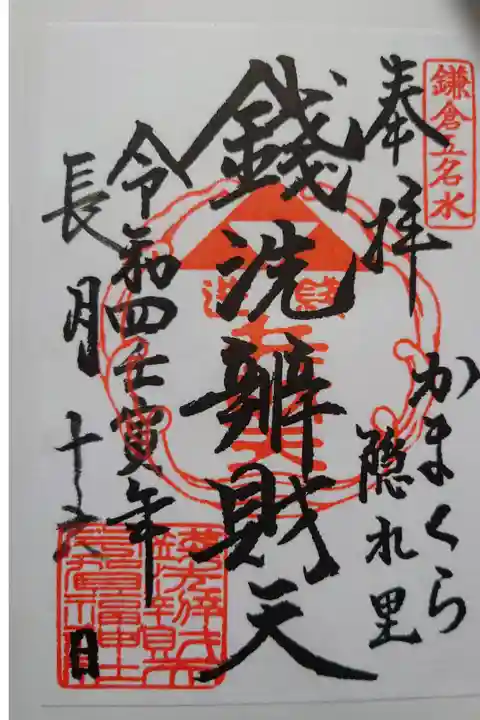 鎌倉五名水
奉拝
かまくら
隠れ里
銭洗
錢洗辦財天
令和四壬寅年
長月
十六日